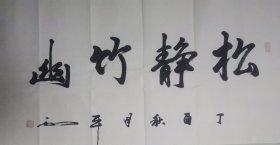 松静竹幽
丁酉秋月